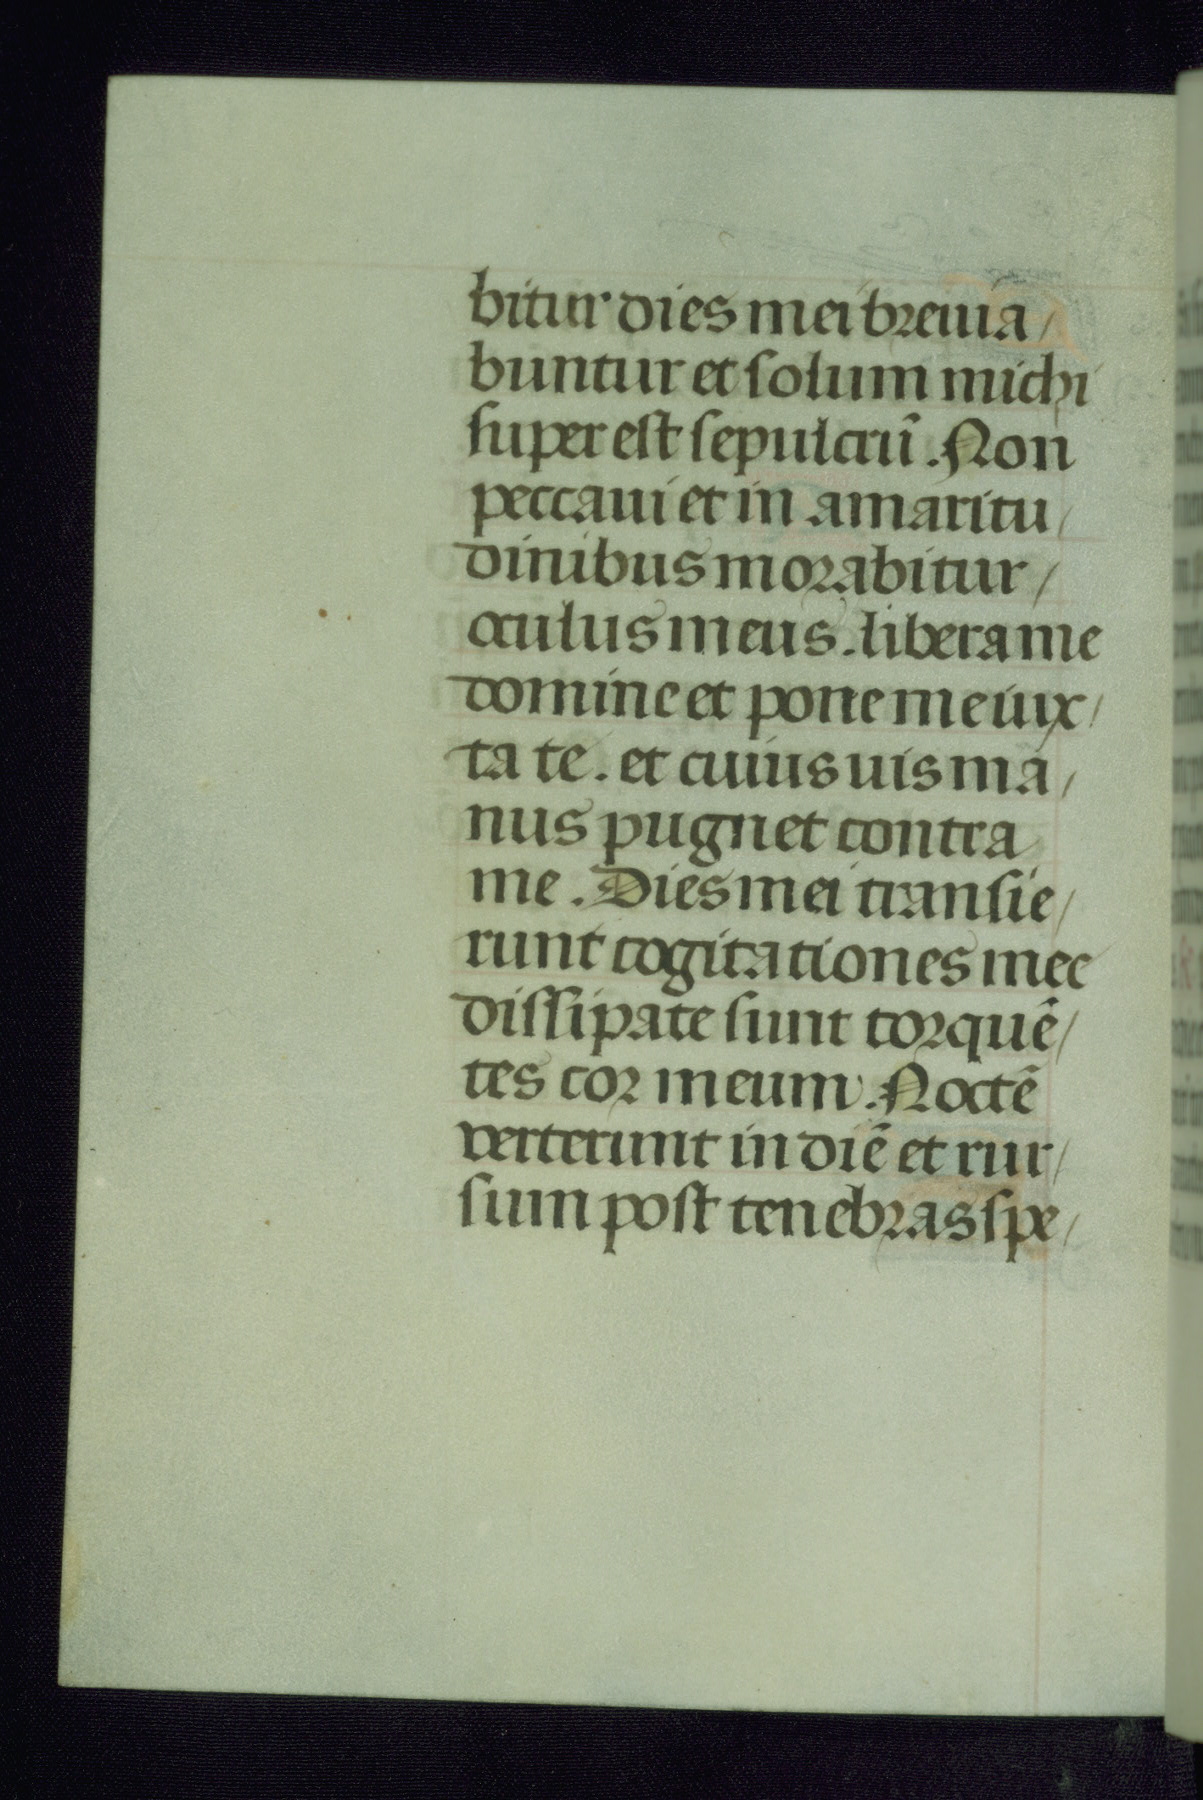 bitur dies mei breuia/
buntur et solum michi
super est sepulcrū. Non
peccaui et in amaritu/
dinibus morabitur/
oculus meus. libera me
domine et pone me iux/
ta te. et cuius uis ma/
nus pugnet contra
me. Dies mei transie/
runt cogitationes mee
dissipate sunt torquē/
tes cor meum. Noctē
verterunt in diē et rur/
sum post tenebras spe/